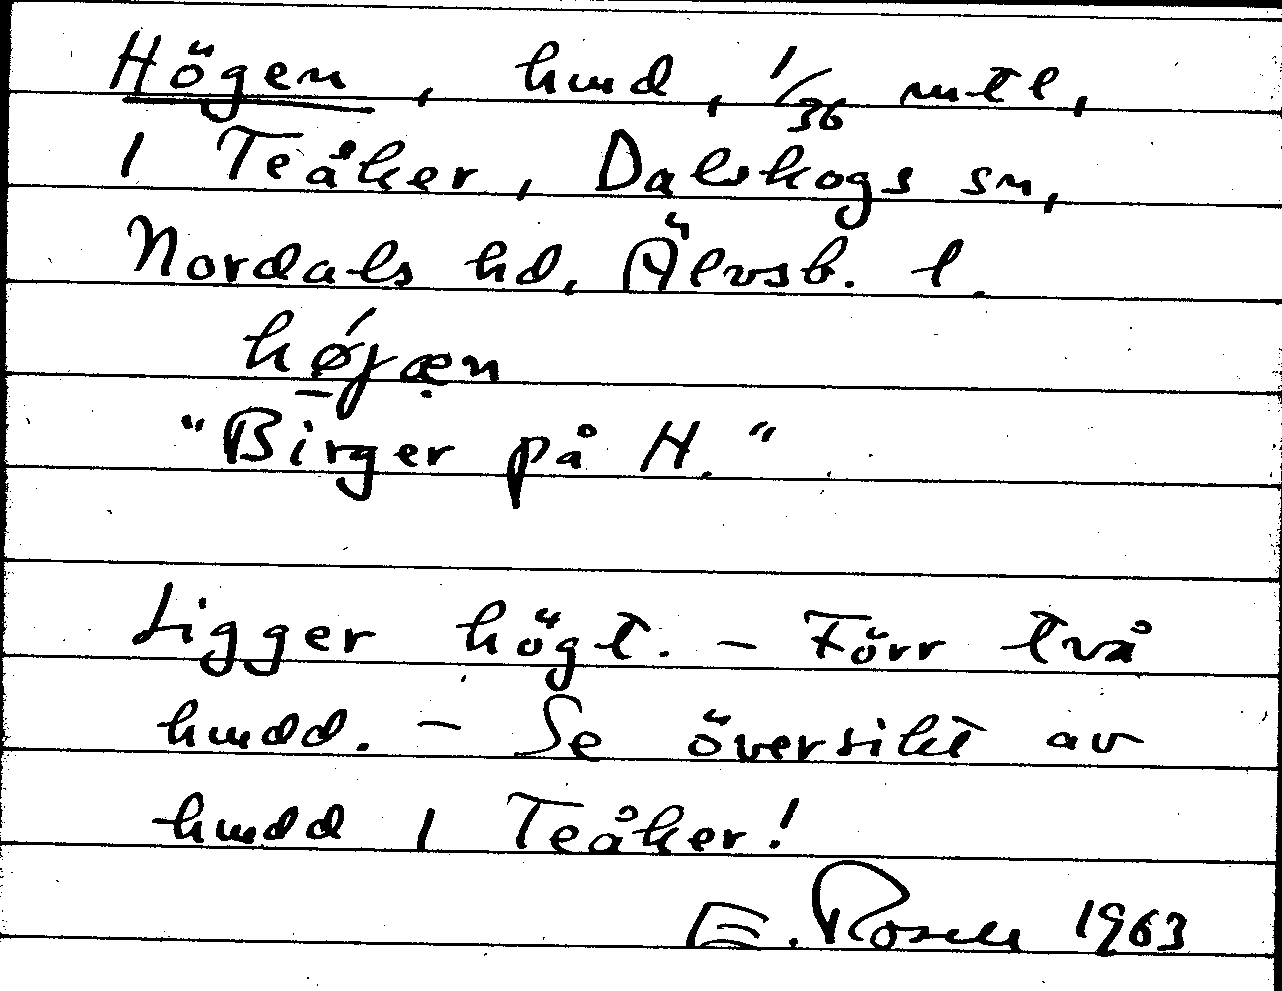 Högen, hmd, 1/36 mtl,
i Teåker, Dalskogs sn,
Nordals hd, Älvsb. l.
hǿ̱jæ̣n
"Birger på H."
Ligger högt. – Förr två
hmdd. – Se översikt av
hmdd i Teåker!
E. Rosell 1963